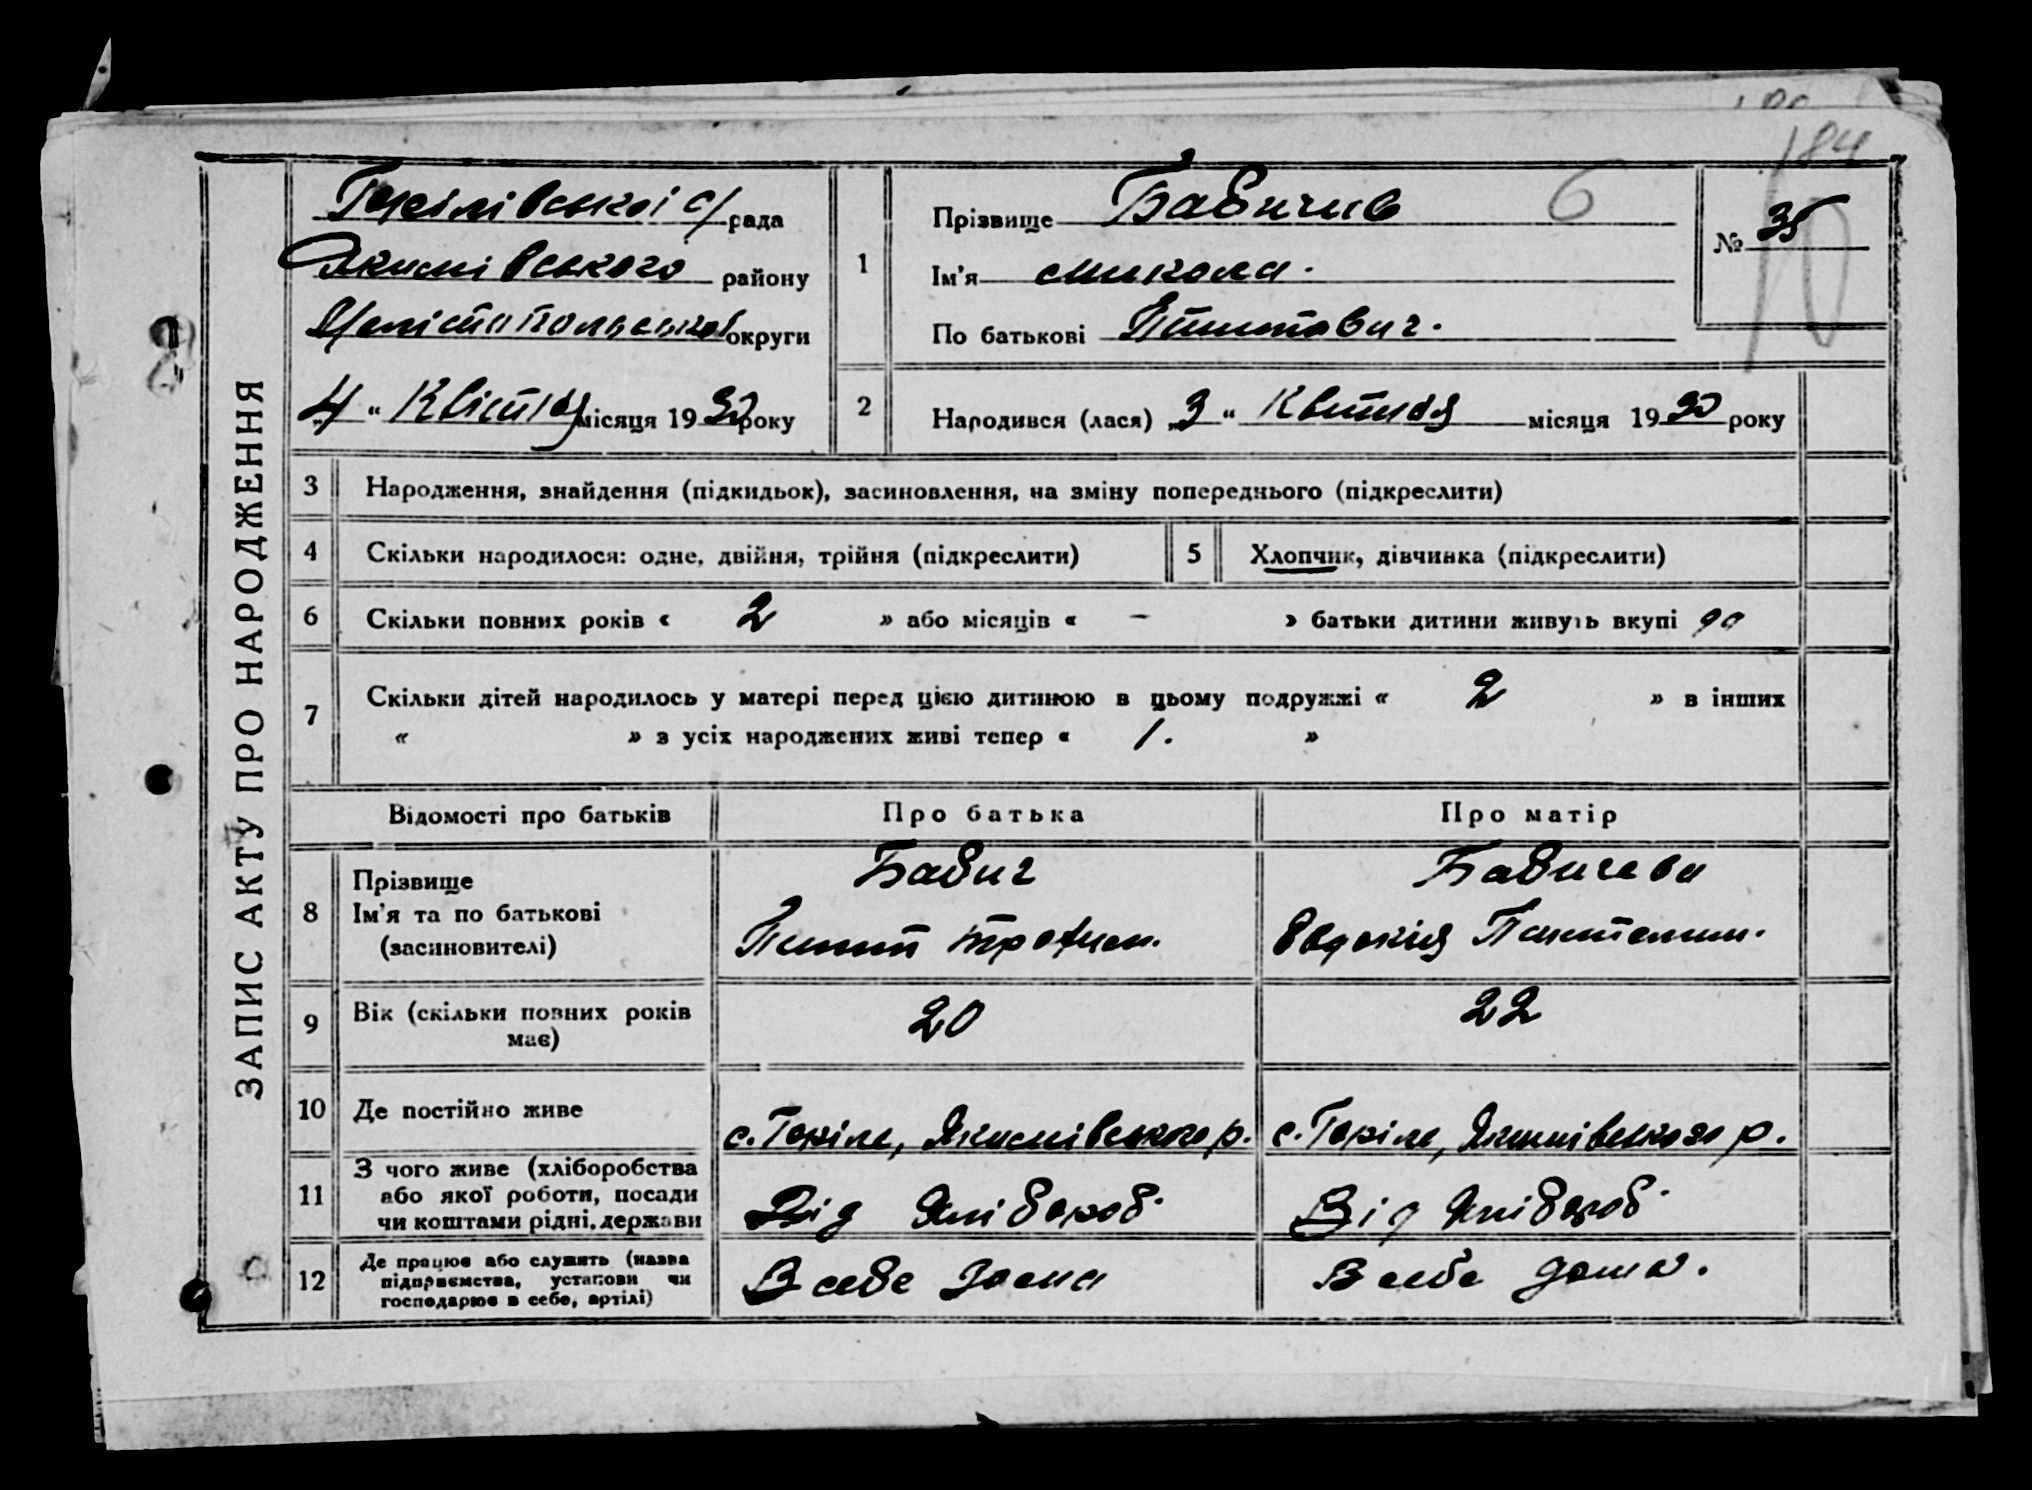 184
ЗАПИС АКТУ ПРО НАРОДЖЕННЯ
Горілівської с/рада
Якимівського району
Мелітопольської округи
„4“ Квітня місяця 1930 року
1
Прізвище Бабичив
6
Ім'я Микола.
По батькові Пимитович.
№ 35
2
Народився (лася) „3“ Квитня місяця 1930 року
3 Народження, знайдення (підкидьок), засиновлення, на зміну попереднього (підкреслити)
4 Скільки народилося: одне, двійня, трійня (підкреслити)
5 Хлопчик, дівчинка (підкреслити)
6 Скільки повних років « 2 » або місяців « – » батьки дитини живуть вкупі
7 Скільки дітей народилось у матері перед цією дитиною в цьому подружжі « 2 » в інших
« » з усіх народжених живі тепер « 1. »
Відомості про батьків Про батька Про матір
8 Прізвище
Ім'я та по батькові
(засиновителі)
Бабич
Трофим.
Бабичева
Евдокія Пантелим.
9 Вік (скільки повних років
має)
20
22
10 Де постійно живе
с. Горіле, Якимівського р.
с. Горіле, Якимівського р.
11 З чого живе (хліборобства
або якої роботи, посади
чи коштами рідні, держави
Від Хлібороб.
Від Хлібороб.
12 Де працює або служить (назва
підприємства, установи чи
господарює в себе, артілі)
В себе дома
В себе дома.